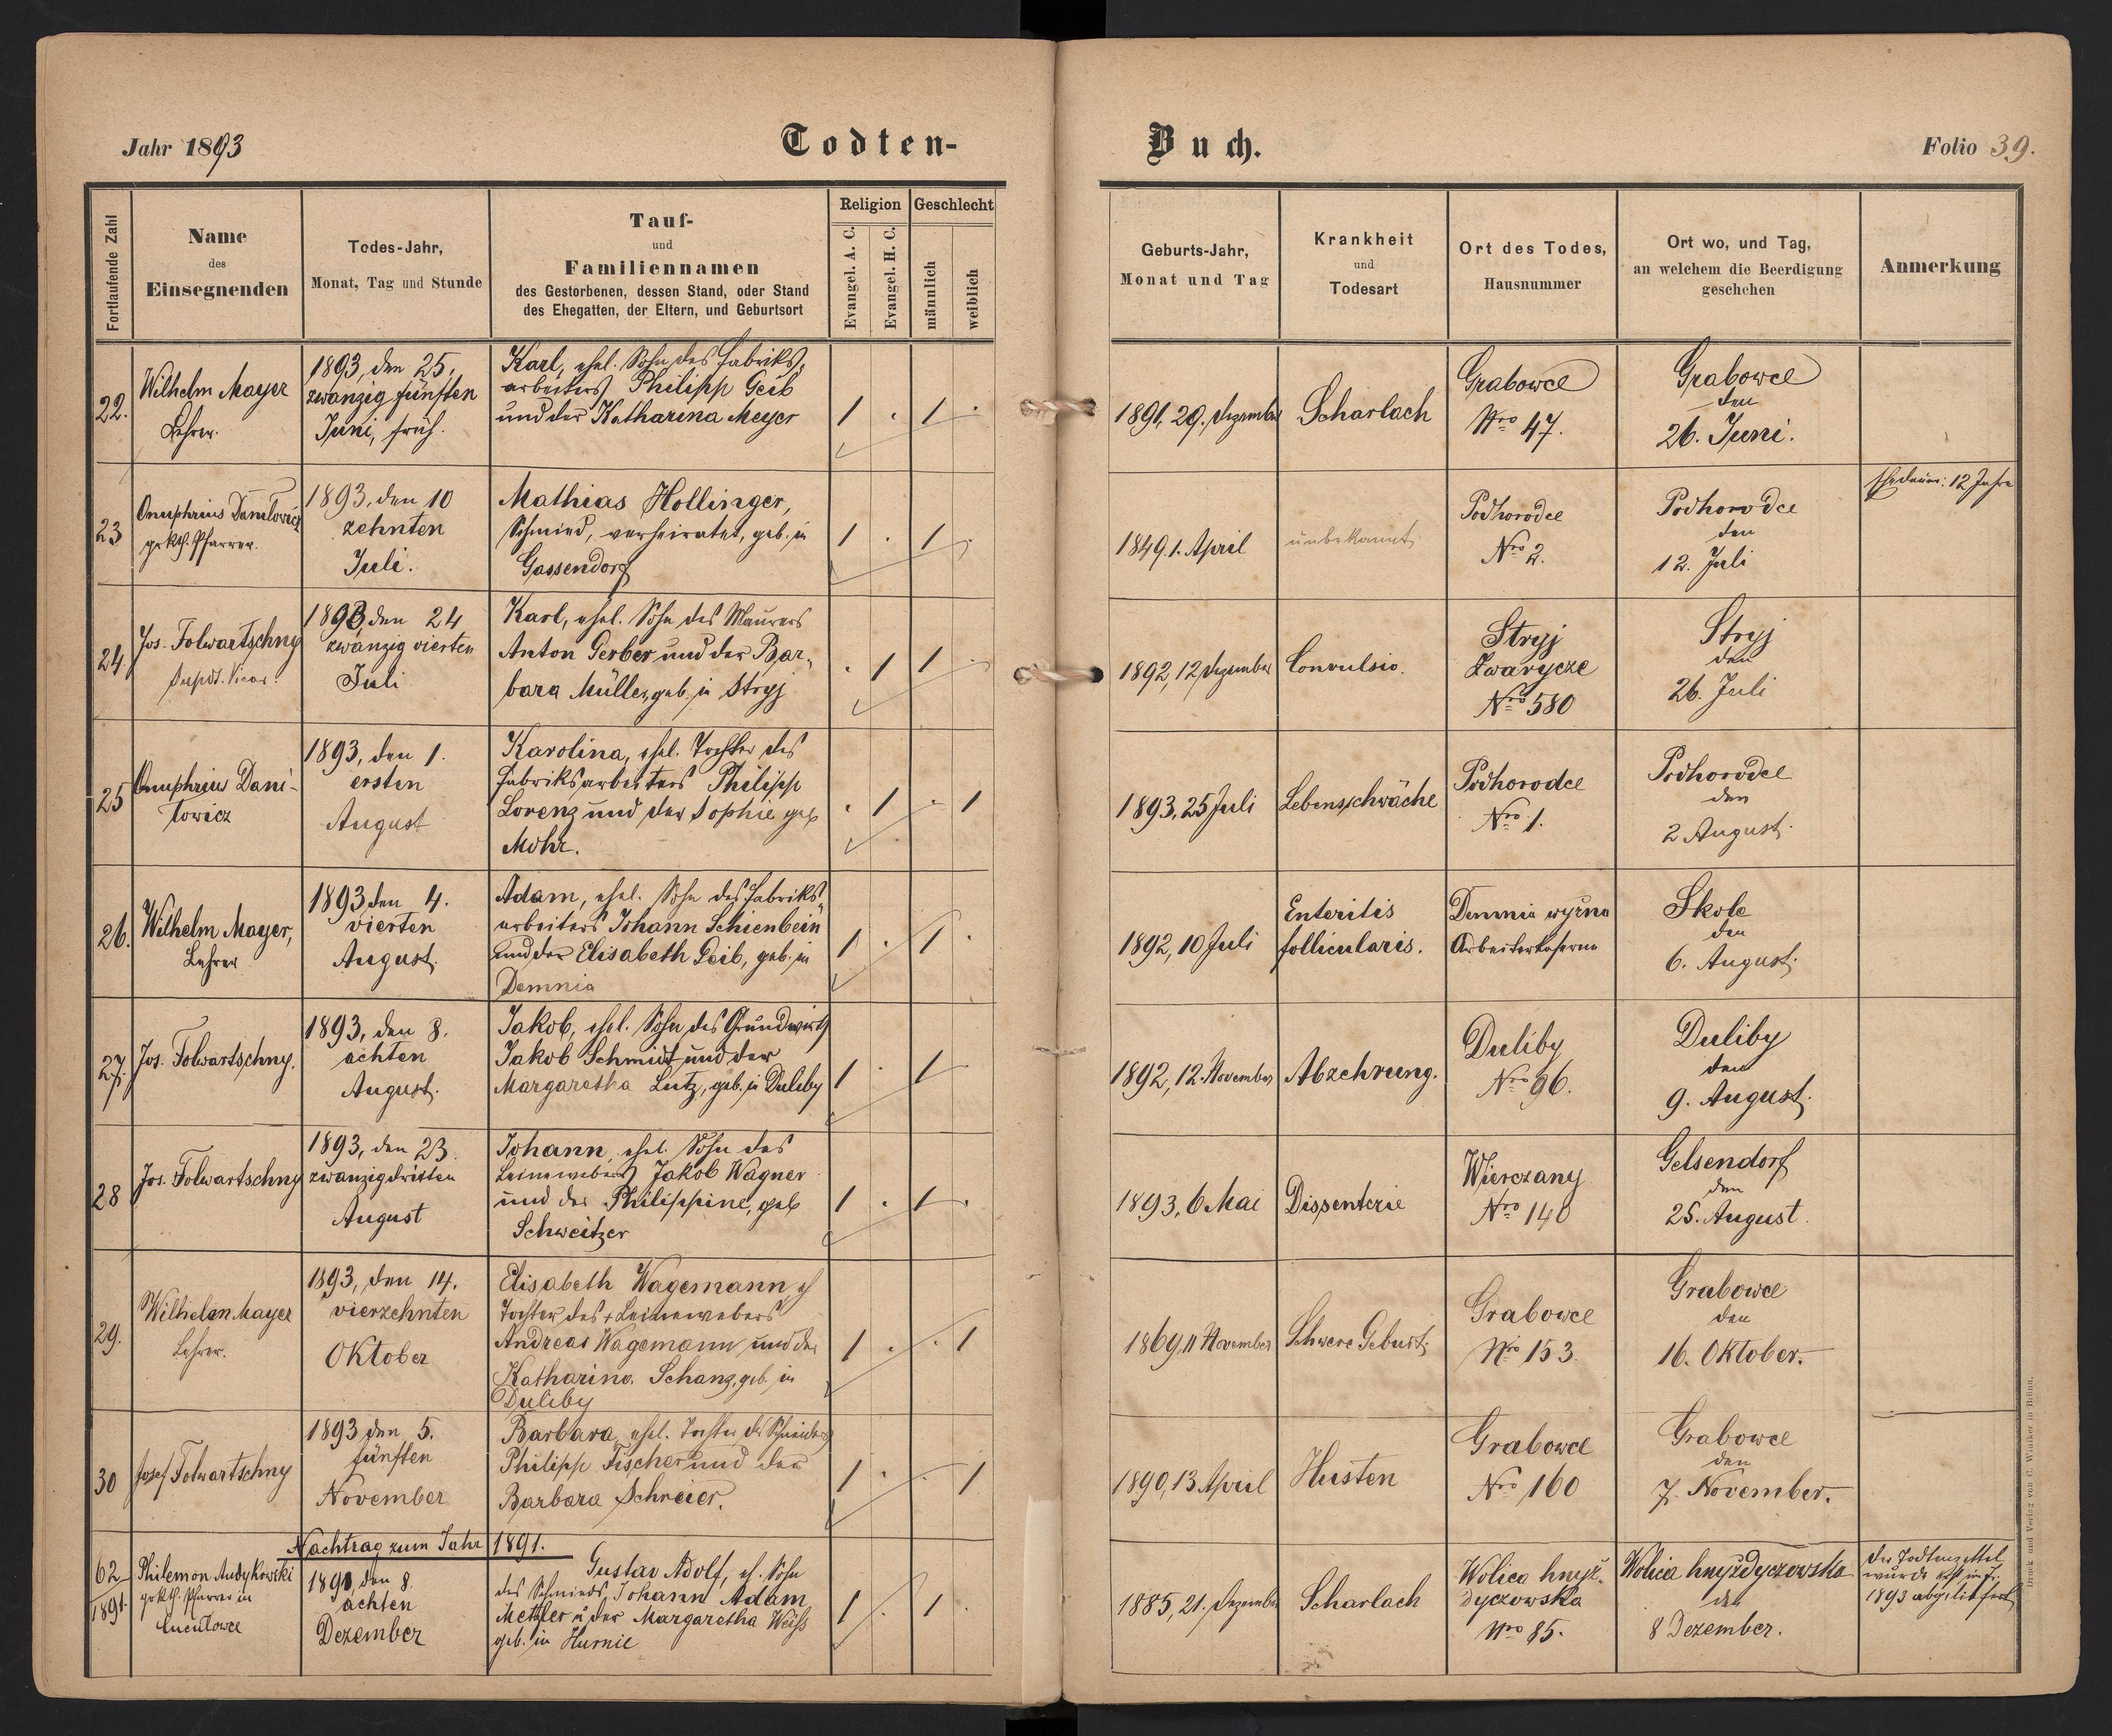 Jahr 1893
Todten-
Buch.
Folio 39.
Fortlaufende Zahl
Name
des
Einsegnenden
Todes-Jahr,
Monat, Tag und Stunde
Tauf-
und
Familiennamen
des Gestorbenen, dessen Stand, oder Stand
des Ehegatten, der Eltern, und Geburtsort
Religion
Evangel. A. C.
Evangel. H. C.
Geschlecht
männlich
weiblich
Geburts-Jahr,
Monat und Tag
Krankheit
und
Todesart
Ort des Todes,
Hausnummer
Ort wo, und Tag,
an welchem die Beerdigung
geschehen
Anmerkung
22.
Wilhelm Mayer
Lehrer.
1893, den 25.
zwanzig fünften
Juni, früh.
Karl, ehel. Sohn des Fabriks-
arbeiters Philipp Geib
und der Katharina Meyer
1 . 1 .
1891, 29. Dezember
Scharlach
Grabowce
Nro 47.
Grabowce
den
26. Juni.
23
Onuphrius Daniłowicz
gr kth. Pfarrer.
1893, den 10
zehnten
Juli.
Mathias Hollinger,
Schmied, verheiratet, geb. in
Gassendorf
1 . 1 .
1849, 1. April
unbekannt
Podhorodce
Nro 2.
Podhorodce
den
12. Juli
Ehedauer: 12 Jahre
24.
Jos. Folwartschny
Supdt. Vicar.
1893 den 24
zwanzig vierten
Juli
Karl, ehel. Sohn des Maurers
Anton Gerber und der Bar-
bara Müller, geb. in Stryj
. 1 1 .
1892, 12 Dezember
Convulsio.
Stryj
Zwarycze
Nro 580
Stryj
den
26. Juli
25
Onuphrius Dani-
łowicz
1893, den 1.
ersten
August
Karolina, ehel. Tochter des
Fabriksarbeiters Philipp
Lorenz und der Sophie geb
Mohr.
. 1 . 1
1893, 25 Juli
Lebensschwäche
Podhorodce
Nro 1.
Podhorodce
den
2 August.
26.
Wilhelm Mayer,
Lehrer
1893 den 4.
vierten
August.
Adam, ehel. Sohn des Fabriks-
arbeiters Johann Schienbein
und der Elisabeth Geib, geb. in
Demnia
1 . 1 .
1892, 10 Juli
Enteritis
follicularis.
Demnia wyżna
Arbeiterkaserne
Skole
den
6. August.
27.
Jos. Folwartschny.
1893, den 8.
achten
August.
Jakob, ehel. Sohn des Grundwirts
Jakob Schmidt und der
Margaretha Lutz, geb. in Duliby
1 . 1 .
1892, 12. November
Abzehrung.
Duliby
Nro 96.
Duliby
den
9. August.
28
Jos. Folwartschny
1893, den 23.
zwanzigdritten
August
Johann, ehel. Sohn des
Leinewebers Jakob Wagner
und der Philippine, geb
Schweitzer
1 . 1 .
1893, 6 Mai
Dissenterie
Wierczany
Nro 140
Gelsendorf
den
25. August.
29.
Wilhelm Mayer
Lehrer.
1893, den 14.
vierzehnten
Oktober
Elisabeth Wagemann, eh
Tochter des + Leinewebers
Andreas Wagemann und der
Katharina Schanz, geb. in
Duliby
1 . . 1
1869, 11 November
Schwere Geburt.
Grabowce
Nro 153.
Grabowce
den
16. Oktober.
30
Josef Folwartschny
1893 den 5.
fünften
November
Barbara, ehel. Tochter des Schneiders
Philipp Fischer und der
Barbara Schreier.
1 . . 1
1890, 13 April
Husten
Grabowce
Nro 160
Grabowce
den
7. November.
Nachtrag zum Jahr 1891.
62
1891.
Philemon Andykowski
gr kth. Pfarrer in
1891, den 8.
achten
Dezember
Gustav Adolf, eh. Sohn
des Schmieds Johann Adam
Mettler u der Margaretha Weiß
geb. in Hurnie
1 . 1 .
1885, 21. Dezember
Scharlach
Wolica hnyz-
dyczowska
Nro 85.
Wolica hnyzdyczowska
den
8 Dezember.
Der Todtenzettel
wurde erst im J.
1893 abgeliefert
Druck und Verlag von C. Winiker in Brünn.